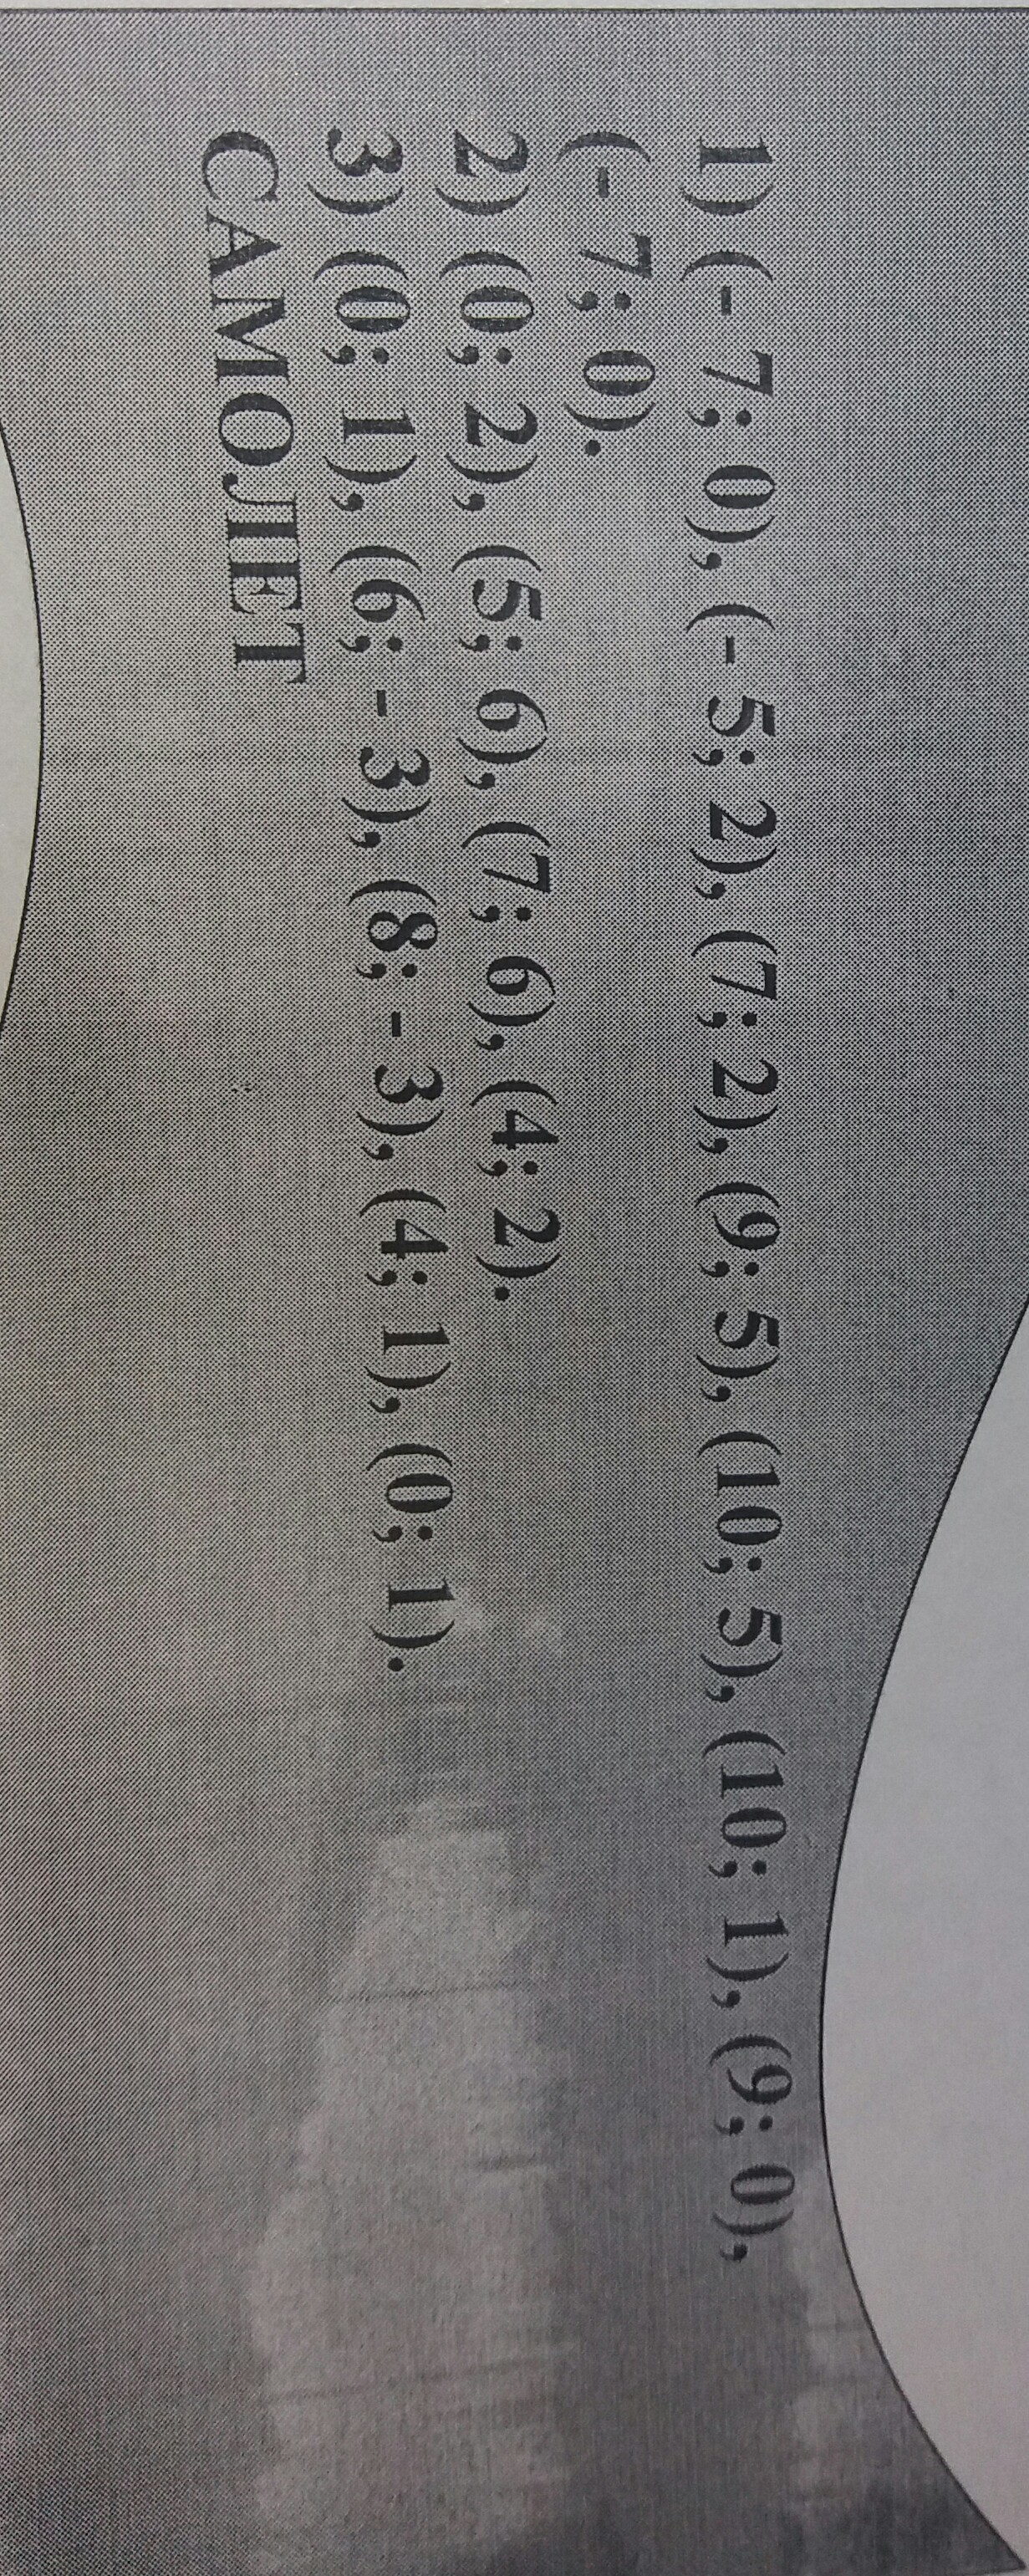 1) (- 7; 0), (- 5; 2), (7; 2), (9; 5), (10; 5), (10; 1), (9; 0),
(- 7; 0).
2) (0; 2), (5; 6), (7; 6), (4; 2).
3) (0; 1), (6; - 3), (8; - 3), (4; 1), (0; 1).
САМОЛЕТ